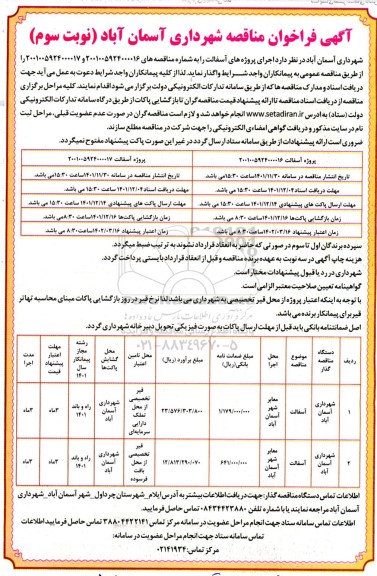 آگهی فراخوان مناقصه شهرداری آسمان آباد (نوبت سوم)
شهرداری آسمان آباد در نظر دارد اجرای پروژه های آسفالت را به شماره مناقصه های ۲۰۰۱۰۰۵۹۲۴۰۰۰۰۱۶ و ۲۰۰۱۰۰۵۹۲۴۰۰۰۰۱۷ را
از طریق مناقصه عمومی به پیمانکاران واجد شرایط واگذار نماید. لذا از کلیه پیمانکاران واجد شرایط دعوت به عمل می آید جهت
دریافت اسناد و مدارک مناقصه ها که از طریق سامانه تدارکات الکترونیکی دولت برگزار می شود اقدام نمایند. کلیه مراحل برگزاری
مناقصه از دریافت اسناد مناقصه تا ارائه پیشنهاد قیمت مناقصه گران تا بازگشایی پاکات از طریق درگاه سامانه تدارکات الکترونیکی
دولت (ستاد) به آدرس www.setadiran.ir انجام خواهد شد و لازم است مناقصه گران در صورت عدم عضویت قبلی، مراحل ثبت
نام در سایت مذکور و دریافت گواهی امضای الکترونیکی را جهت شرکت در مناقصه مطلع سازند.
ضروری است ارائه پیشنهادات از طریق سامانه ستاد ارسال گردد در غیر این صورت پاکت پیشنهاد مفتوح نمیگردد.
پروژه آسفالت ۲۰۰۱۰۰۵۹۲۴۰۰۰۰۱۶ پروژه آسفالت ۲۰۰۱۰۰۵۹۲۴۰۰۰۰۱۷
تاریخ انتشار مناقصه در سامانه ۱۴۰۱/۱۱/۳۰ ساعت ۱۵:۳۰ می باشد. تاریخ انتشار مناقصه در سامانه ۱۴۰۱/۱۱/۳۰ ساعت ۱۵:۳۰ می باشد.
مهلت دریافت اسناد ۱۴۰۱/۱۲/۰۴ ساعت ۱۵:۳۰ می باشد. مهلت دریافت اسناد ۱۴۰۱/۱۲/۰۴ ساعت ۱۵:۳۰ می باشد.
مهلت ارسال پاکت های پیشنهادی ۱۴۰۱/۱۲/۱۴ ساعت ۱۵:۳۰ می باشد. مهلت ارسال پاکت های پیشنهادی ۱۴۰۱/۱۲/۱۴ ساعت ۱۵:۳۰ می باشد.
زمان بازگشایی پاکت‌ها ۱۴۰۱/۱۲/۱۶ ساعت ۸:۳۰ می باشد. زمان بازگشایی پاکت‌ها ۱۴۰۱/۱۲/۱۶ ساعت ۸:۳۰ می باشد.
زمان اعتبار پیشنهاد ۱۴۰۲/۰۳/۱۶ ساعت ۸:۳۰ می باشد. زمان اعتبار پیشنهاد ۱۴۰۲/۰۳/۱۶ ساعت ۸:۳۰ می باشد.
سپرده برندگان اول تا سوم در صورتی که حاضر به انعقاد قرارداد نشوند به ترتیب ضبط میگردد.
هزینه چاپ آگهی در سه نوبت به عهده برنده مناقصه و قبل از انعقاد قرارداد بایستی پرداخت گردد.
شهرداری در رد یا قبول پیشنهادات مختار است.
گواهینامه تعیین صلاحیت معتبر الزامی است.
با توجه به اینکه اعتبار پروژه از محل قیر تخصیصی به شهرداری می باشد لذا نرخ قیر در روز بازگشایی پاکات مبنای محاسبه تهاتر
قیر برای پیمانکار برنده می باشد.
اصل ضمانتنامه بانکی باید قبل از مهلت ارسال پاکات به صورت فیزیکی تحویل دبیرخانه شهرداری گردد.
ردیف دستگاه مناقصه گذار موضوع مناقصه محل اجرا مبلغ ضمانت نامه بانکی (ریال) مبلغ برآورد (ریال) محل تامین اعتبار محل گشایش پاکت‌ها رشته مجاز پیمانکار سال ۱۴۰۱ مهلت اعتبار پیشنهاد قیمت مدت اجرا
۱ شهرداری آسمان آباد آسفالت معابر شهر آسمان آباد ۱/۱۷۹/۰۰۰/۰۰۰ ۲۳/۵۷۶/۳۰۳/۸۰۰ قیر تخصیصی از محل تملک دارایی سرمایه‌ای شهرداری آسمان آباد راه و باند ۱۴۰۱ ۳ ماه ۳ ماه
۲ شهرداری آسمان آباد آسفالت معابر شهر آسمان آباد ۶۴۱/۰۰۰/۰۰۰ ۱۲/۸۱۳/۲۹۰/۰۷۰ قیر تخصیصی از محل بافت فرسوده شهرداری آسمان آباد راه و باند ۱۴۰۱ ۳ ماه ۳ ماه
اطلاعات تماس دستگاه مناقصه گذار: جهت دریافت اطلاعات بیشتر به آدرس ایلام_شهرستان چرداول_شهر آسمان آباد_شهرداری
آسمان آباد مراجعه نمایند یا با شماره تلفن ۰۸۴۳۴۴۲۳۸۸۰ تماس حاصل فرمایید.
اطلاعات تماس سامانه ستاد جهت انجام مراحل عضویت در سامانه مرکز تماس ۳۸۸۰۴۴۲۲۱۴۱ تماس حاصل فرمایید اطلاعات
تماس سامانه ستاد جهت انجام مراحل عضویت در سامانه:
مرکز تماس: ۰۲۱۴۱۹۳۴
۰۲۱-۸۸۳۴۹۶۷۰-۵